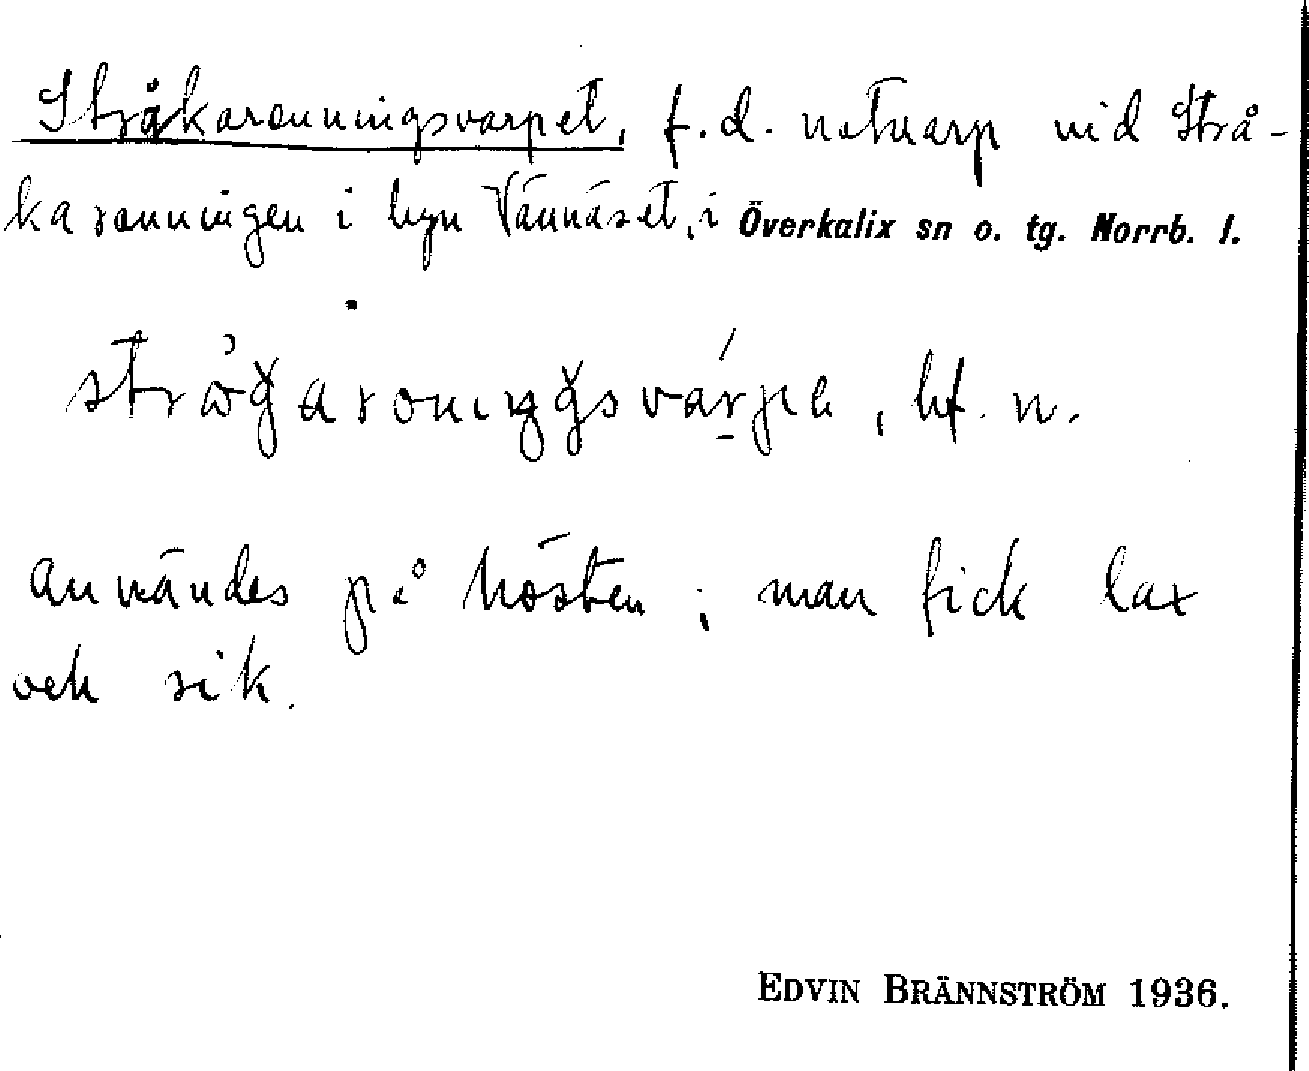 Stråkaronningsvarpet, f.d. notvarp vid Strå-
karonningen i byn Vännäset, i Överkalix sn o. tg. Norrb. l.
bf. n.
användes på hösten; man fick lax
och sik.
EDVIN BRÄNNSTRÖM 1936.